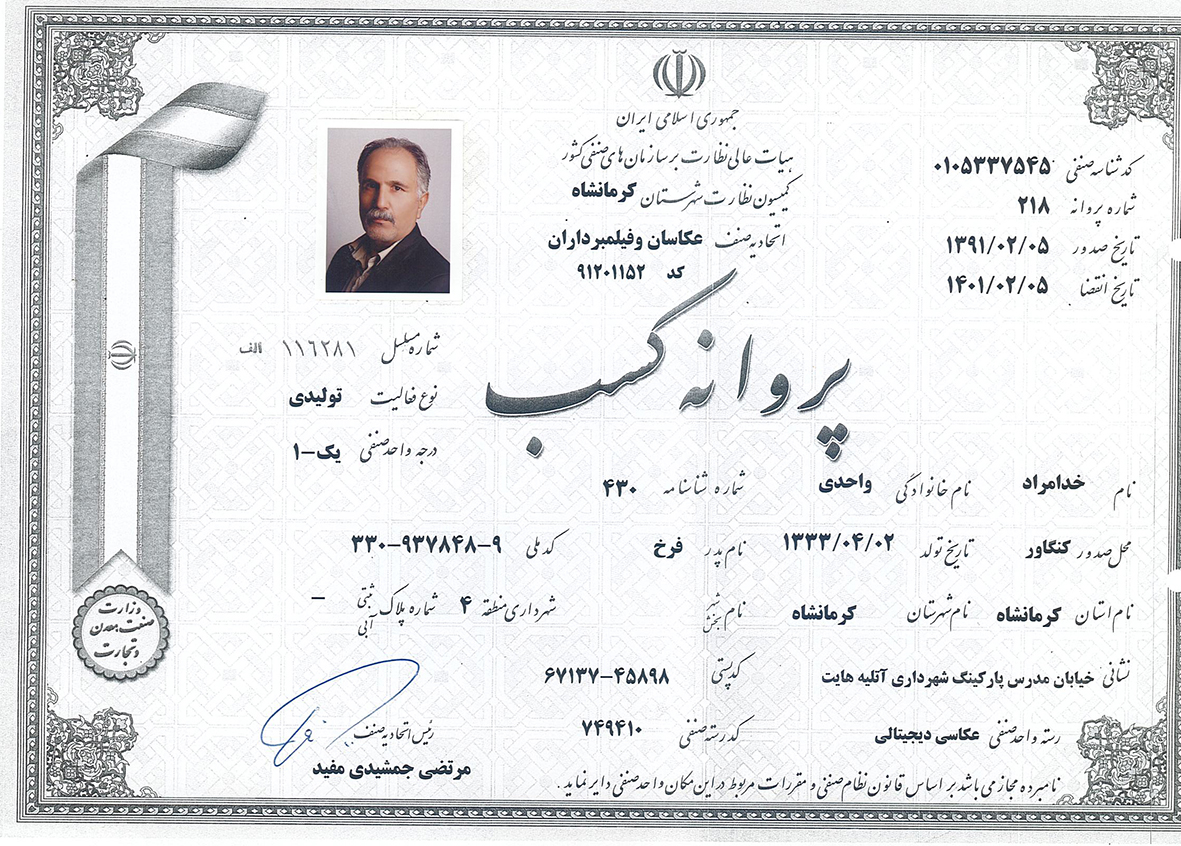 جمهوری اسلامی ایران
هیات عالی نظارت بر سازمان های صنفی کشور
کمیسیون نظارت شهرستان کرمانشاه
اتحادیه صنف عکاسان وفیلمبرداران
کد ۹۱۲۰۱۱۵۲
کد شناسه صنفی ۰۱۰۵۳۳۷۵۴۵
شماره پروانه ۲۱۸
تاریخ صدور ۱۳۹۱/۰۲/۰۵
تاریخ انقضا ۱۴۰۱/۰۲/۰۵
پروانه کسب
شماره مسلسل ۱۱۶۲۸۱ الف
نوع فعالیت تولیدی
درجه واحد صنفی یک-۱
نام خدامراد نام خانوادگی واحدی شماره شناسنامه ۴۳۰
محل صدور کنگاور تاریخ تولد ۱۳۳۳/۰۴/۰۲ نام پدر فرخ کد ملی ۳۳۰-۹۳۷۸۴۸-۹
نام استان کرمانشاه نام شهرستان کرمانشاه نام شهر بخش شهرداری منطقه ۴ شماره پلاک ثبتی آبی -
نشانی خیابان مدرس پارکینگ شهرداری آتلیه هایت کد پستی ۶۷۱۳۷-۴۵۸۹۸
رسته واحد صنفی عکاسی دیجیتالی کد رسته صنفی ۷۴۹۴۱۰
رئیس اتحادیه صنف
مرتضی جمشیدی مفید
نامبرده مجاز می باشد بر اساس قانون نظام صنفی و مقررات مربوط در این مکان واحد صنفی دایر نماید .
وزارت
صنعت، معدن
و تجارت